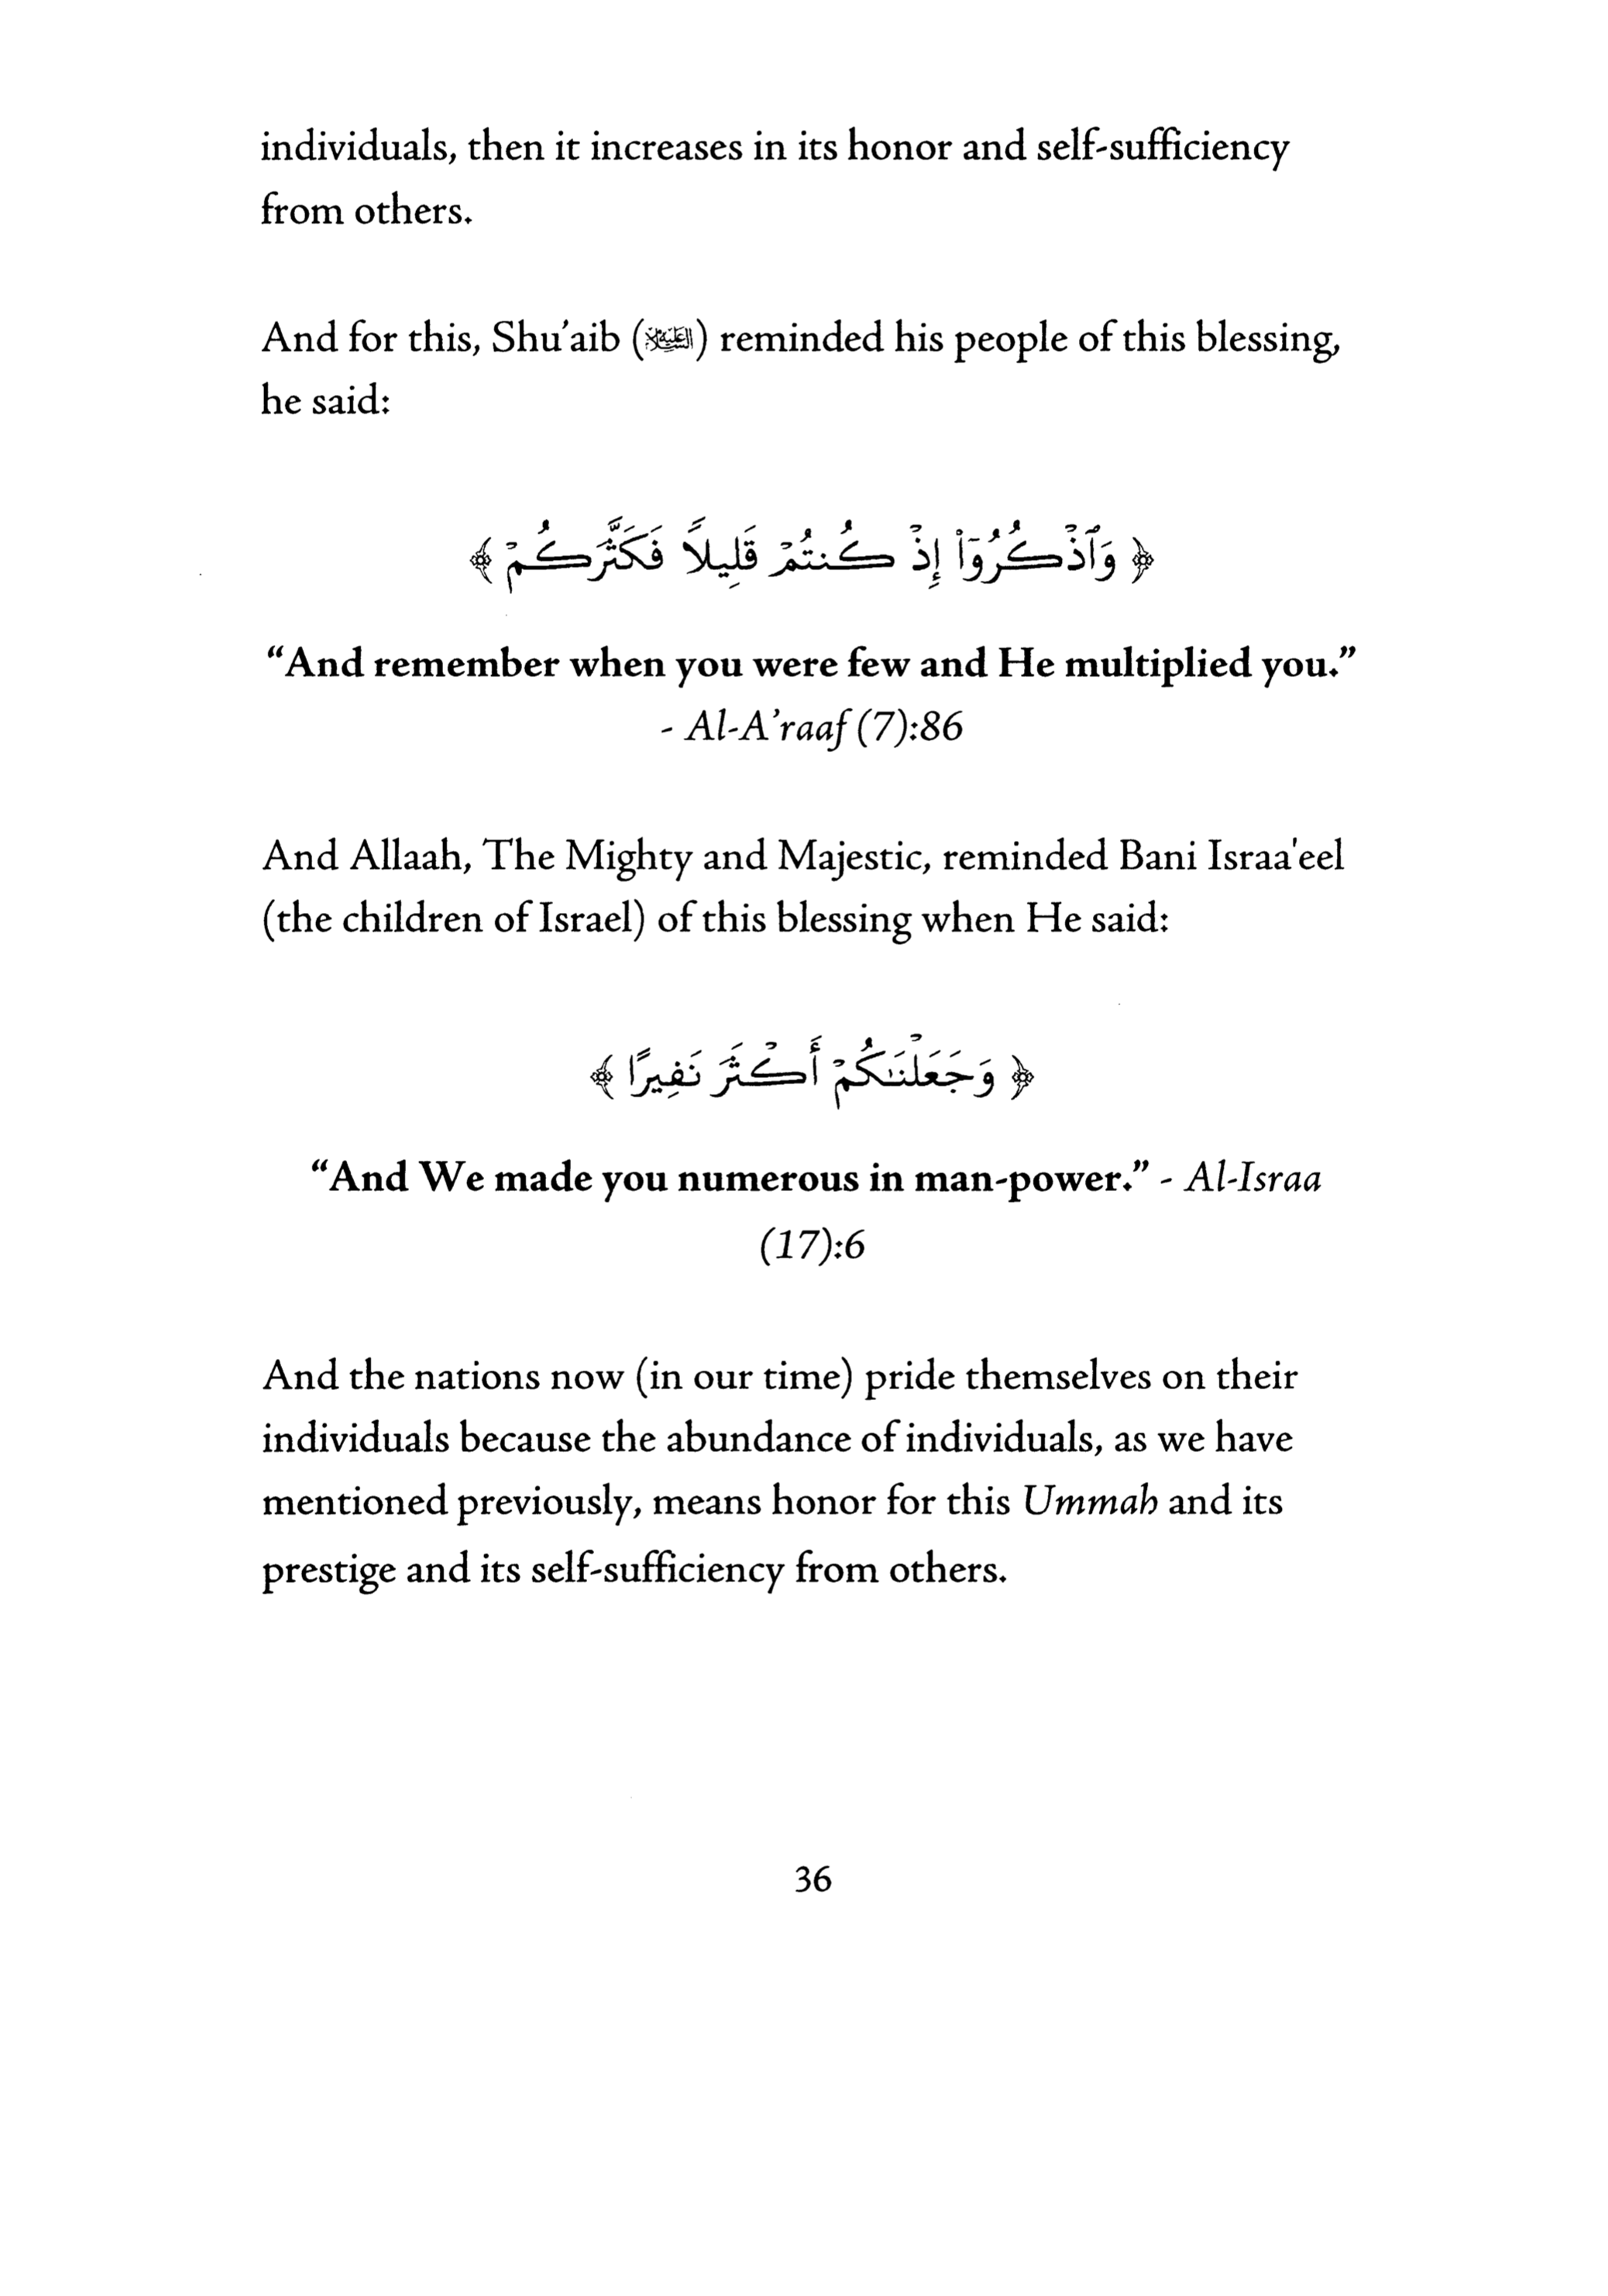 individuals, then it increases in its honor and self-sufficiency
from others.
And for this, Shu'aib (العَلَيْهِ السَّلَام) reminded his people of this blessing,
he said:
﴿ وَٱذْكُرُوٓا۟ إِذْ كُنتُمْ قَلِيلاً فَكَثَّرَكُمْ ﴾
“And remember when you were few and He multiplied you.”
- Al-A'raaf (7):86
And Allaah, The Mighty and Majestic, reminded Bani Israa'eel
(the children of Israel) of this blessing when He said:
﴿ وَجَعَلْنَـٰكُمْ أَكْثَرَ نَفِيرًا ﴾
“And We made you numerous in man-power.” - Al-Israa
(17):6
And the nations now (in our time) pride themselves on their
individuals because the abundance of individuals, as we have
mentioned previously, means honor for this Ummah and its
prestige and its self-sufficiency from others.
36